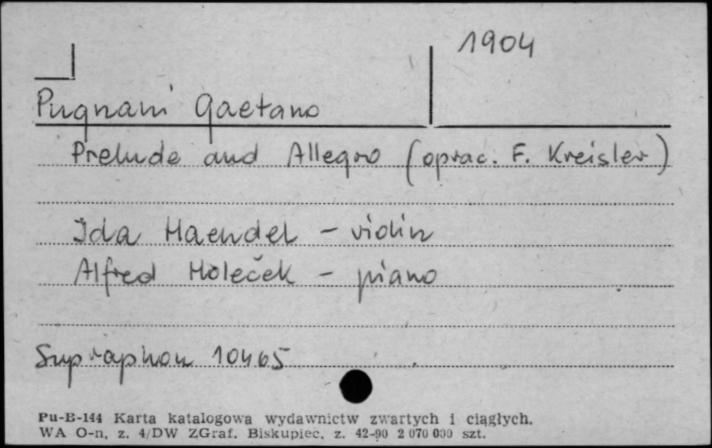 1904
Pugnani Gaetano
Prelude and Allegro (oprac. F. Kreisler)
Ida Haendel - violin
Alfred Holeček - piano
Supraphon 10465
Pu-B-144 Karta katalogowa wydawnictw zwartych i ciągłych.
WA O-n, z. 4/DW ZGraf. Biskupiec, z. 42-90 2 070 000 szt.